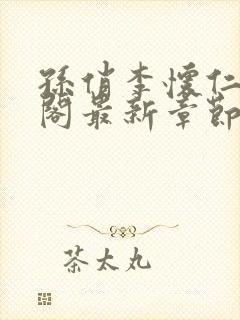 孫俏李懷仁
閣最新章節
茶太丸